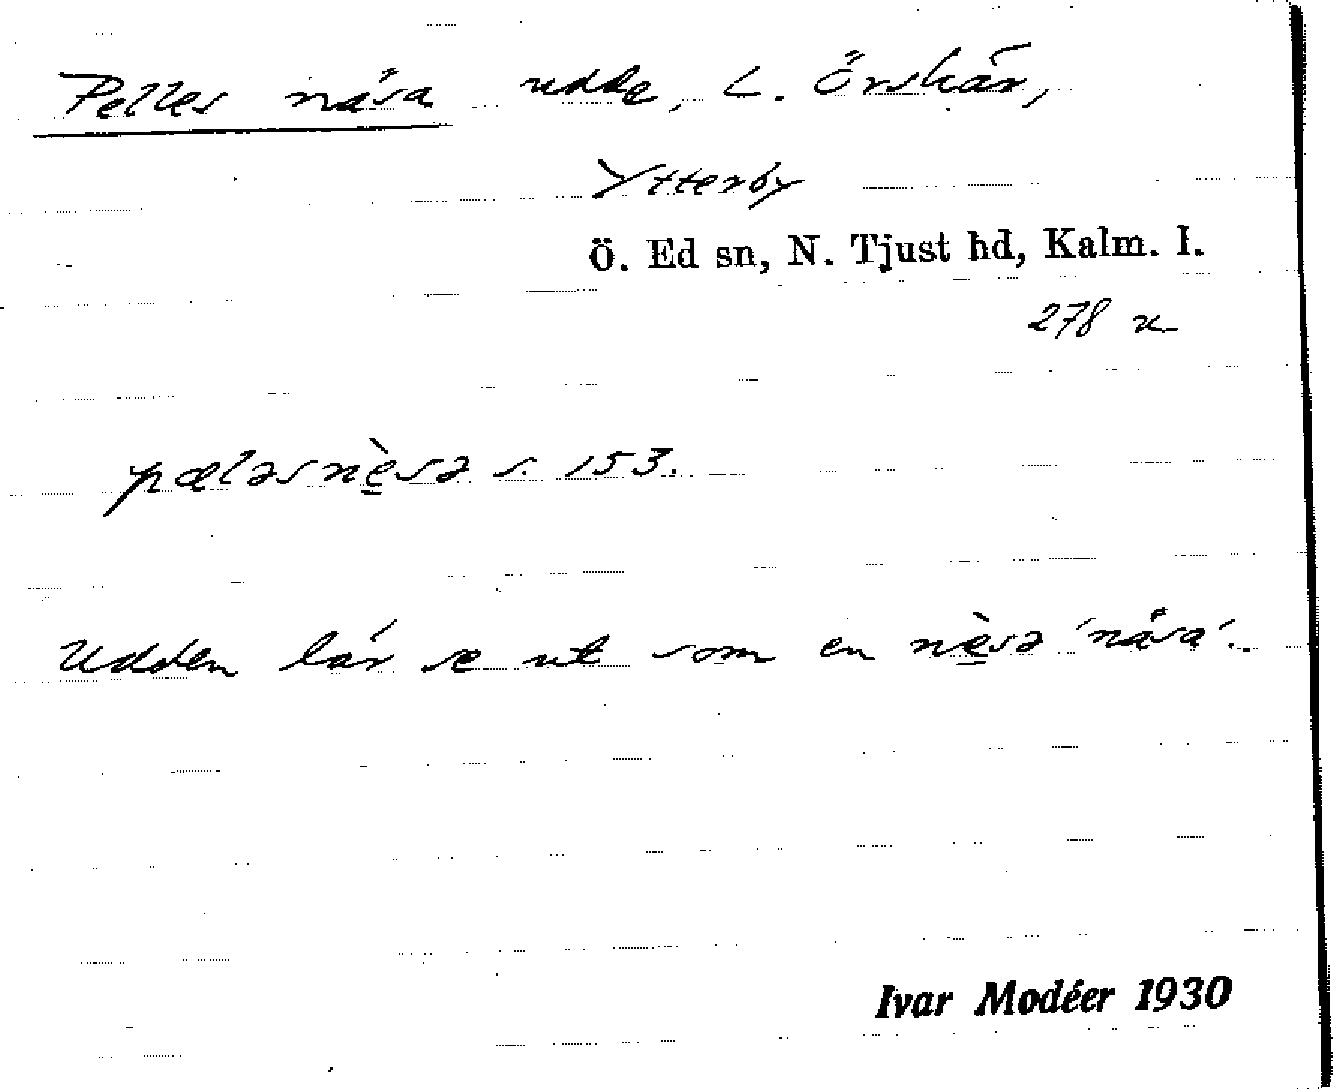 Pelles näsa udde, L. Örskär,
Ytterby
Ö. Ed sn, N. Tjust hd, Kalm. l.
278 u
pæləsnè̱sə s. 153.
Udden lär se ut som en nè̱sə 'näsa'.
Ivar Modéer 1930